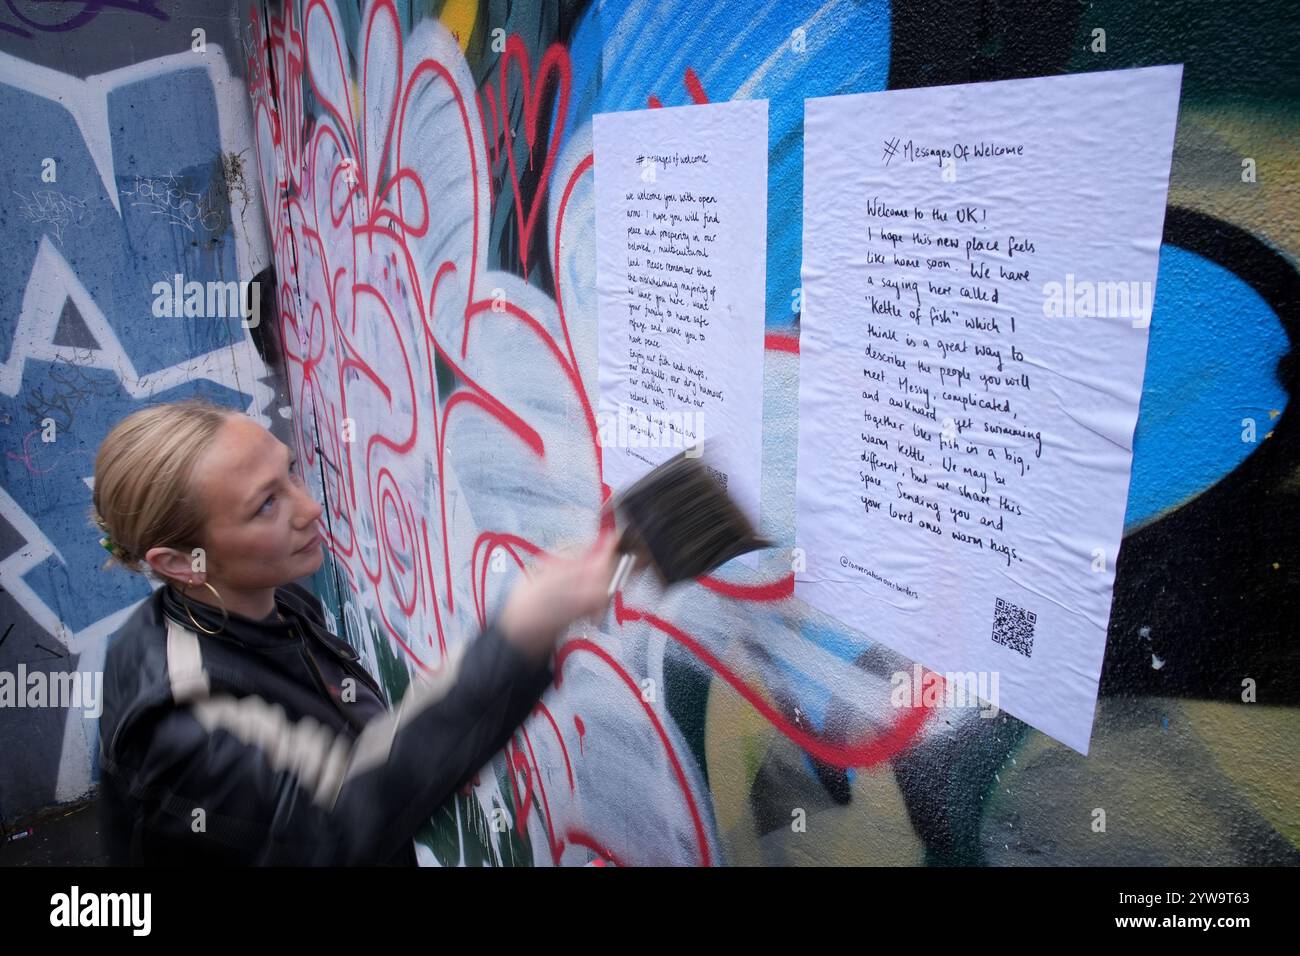 #messages of welcome
we welcome you with open
arms. I hope you will find
peace and prosperity in our
beloved, multicultural
land. Please remember that
the overwhelming majority of
us want you here, want
your family to have safe
refuge and want you to
have peace.
Enjoy our fish and chips,
our seagulls, our dry humour,
our rubbish TV and our
beloved NHS.
#MessagesOfWelcome
Welcome to the UK!
I hope this new place feels
like home soon. We have
a saying here called
"Kettle of fish" which I
think is a great way to
describe the people you will
meet. Messy, complicated,
and awkward, yet swimming
together like fish in a big,
warm kettle. We may be
different, but we share this
space. Sending you and
your loved ones warm hugs.
@conversationoverborders
alamy
Image ID: 2YW9T63
www.alamy.com